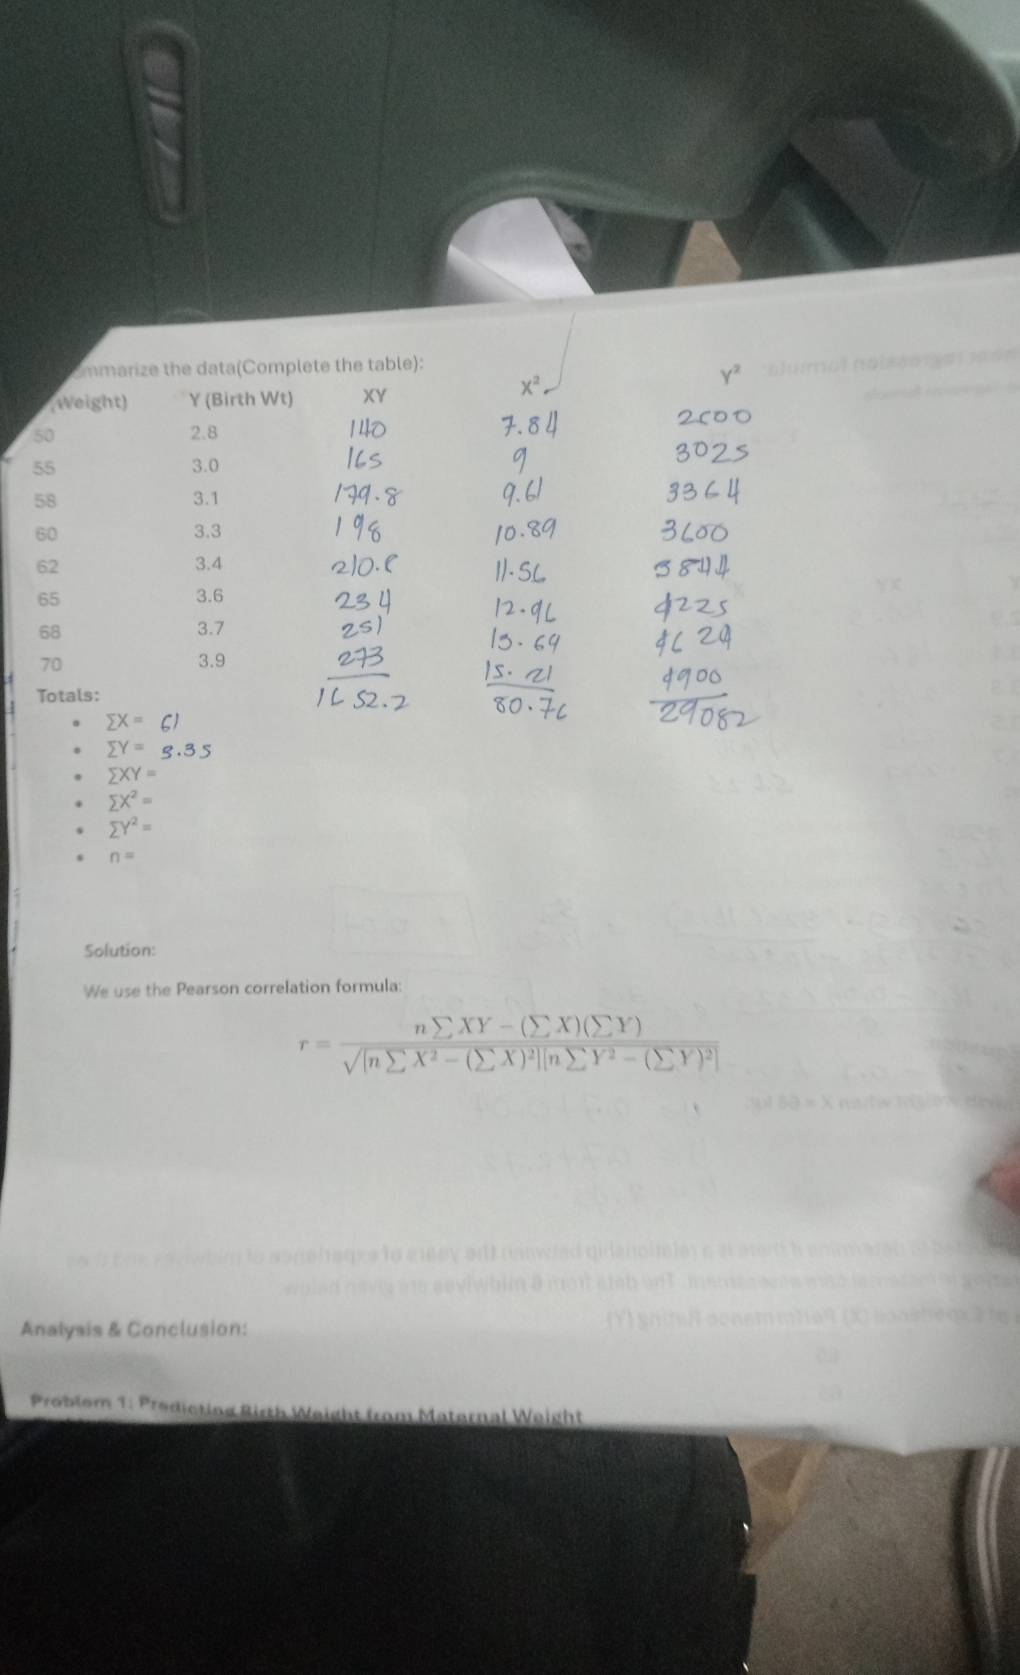 mmarize the data(Complete the table):
Weight) Y (Birth Wt) XY X² Y²
50 2.8 140 7.84 2500
55 3.0 165 9 3025
58 3.1 179.8 9.61 3364
60 3.3 198 10.89 3600
62 3.4 210.8 11.56 3844
65 3.6 234 12.96 4225
68 3.7 251 13.69 4624
70 3.9 273 15.21 4900
Totals: 1652.2 80.76 29082
• ∑X = 61
• ∑Y = 3.35
• ∑XY =
• ∑X² =
• ∑Y² =
• n =
Solution:
We use the Pearson correlation formula:
r = n∑XY − (∑X)(∑Y) / √[n∑X² − (∑X)²][n∑Y² − (∑Y)²]
Analysis & Conclusion:
Problem 1: Predicting Birth Weight from Maternal Weight